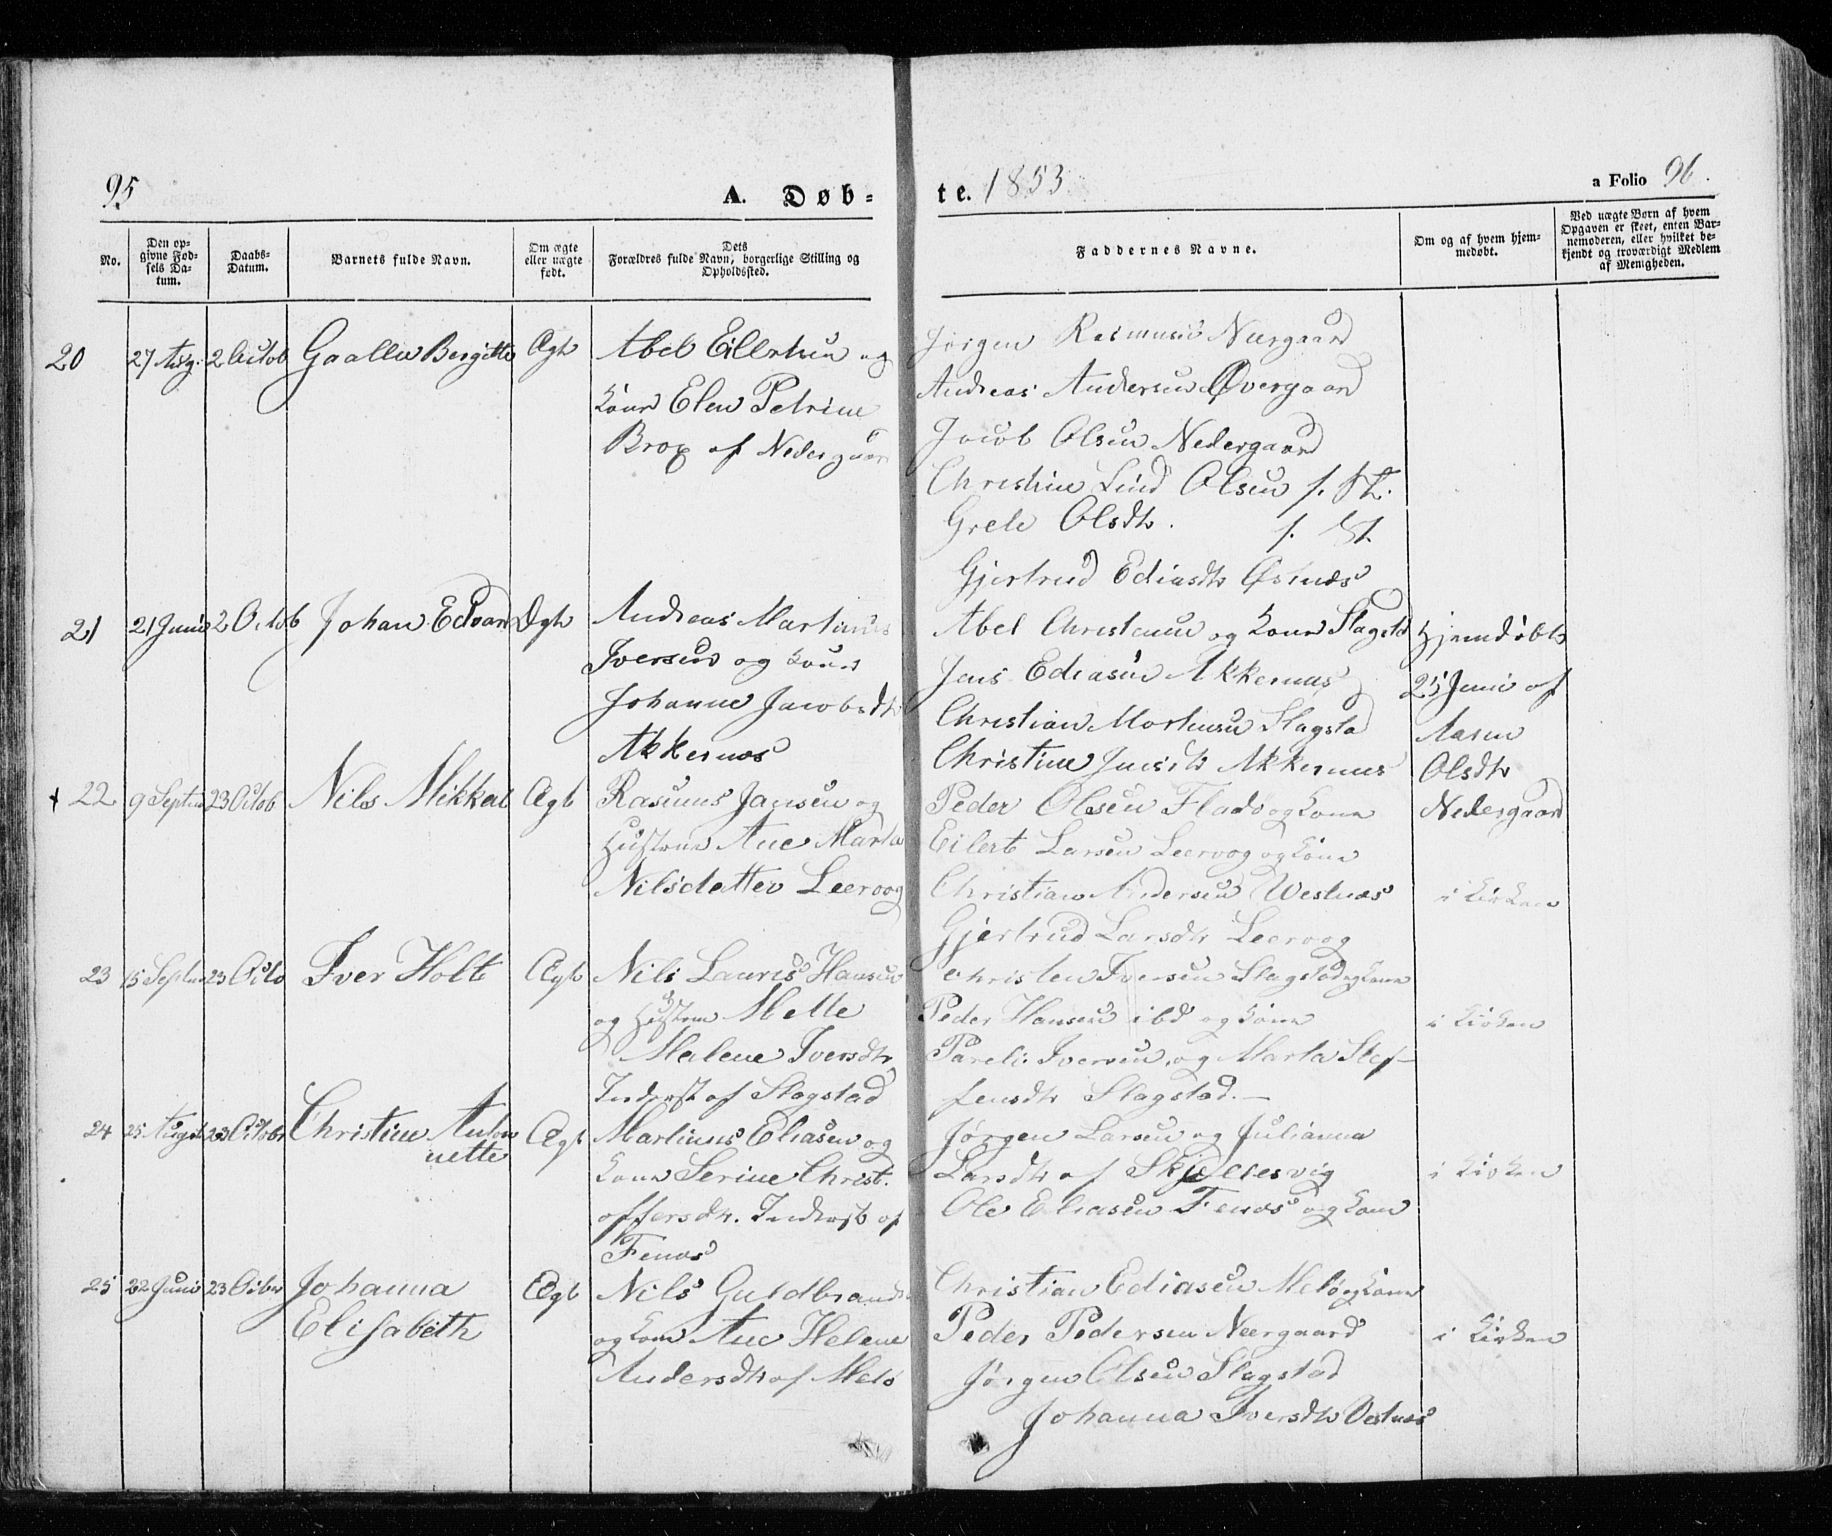 95
A. Døb=
te. 1853
a Folio 96.
No.
Den op-
givne Fød-
sels Da-
tum.
Daabs-
Datum.
Barnets fulde Navn.
Om ægte
eller uægte
født.
Dets
Forældres fulde Navn, borgerlige Stilling og
Opholdssted.
Faddernes Navne.
Om og af hvem hjem-
medøbt.
Ved uægte Børn af hvem
Opgaven er skeet, enten Bar-
nemoderen, eller hvilket be-
kjendt og troværdigt Medlem
af Menigheden.
20
27 Aug.
2 Octob
Bergitte
Ægte
Abel Eilertsen og
Kone Elen Petrine
Brox af Nedergaar
Jørgen Rasmusen Neergaard
Andreas Andersen Øvergaard
Jacob Olsen Nedergaard
Christine Lind Olsen f. St.
Grete Olsdtr. f. St.
Gjertrud Ediasdtr Østnæs
21
21 Juni
2 Octob
Johan Edvard
Ægte
Andreas Martinus
Iversen og Kone
Johanne Jacobsdtr
Akkernæs
Abel Christensen og Kone Slagstd
Jens Ediasen Akkernæs
Christian Mortensen Slagstad
Christine Jensdtr Akkernæs
Hjemdøbt
25 Juni af
Maren
Olsdtr
Nedergaard
22
9 Septem
23 Octob
Nils Mikkel
Ægte
Rasmus Jansen og
Hustrue Ane Marta
Nilsdatter Leervog
Peder Olsen Fladø og Kone
Eilert Larsen Leervog og Kone
Christian Andersen Westnæs
Gjertrud Larsdtr Leervog
i Kirken
23
15 Septem
23 Octo
Iver Holt
Ægte
Nils Lauris Hansen
og Hustrue Mette
Malene Iversdtr
Inderst af Slagstad
Christen Iversen Slagstad og Kone
Peder Hansen ibd og Kone
Pareli Iversen og Marta Stef-
fensdtr Slagstad. —
i Kirken
24
25 August
23 Octobr
Christine Anton
nette
Ægte
Martinus Eliasen og
Kone Serine Christ.
offersdtr. Inderst af
Fenæs
Jørgen Larsen og Julianna
Larsdtr af Skjellesvig
Ole Eliasen Fenæs og Kone
i Kirken
25
22 Juni
23 Octbr
Johanna
Elisabeth
Ægte
Nils Guldbrands
og Kone Ane Helene
Andersdtr af Melø
Christian Ediasen Melø og Kone
Peder Pedersen Neergaard
Jørgen Olsen Slagstad
Johanna Iversdtr Vestnæs
i Kirken